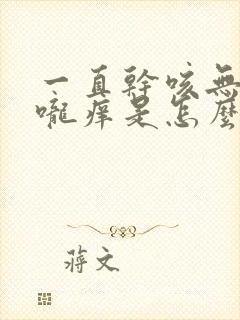 一直幹咳無
嚨癢是怎麼
蔣文